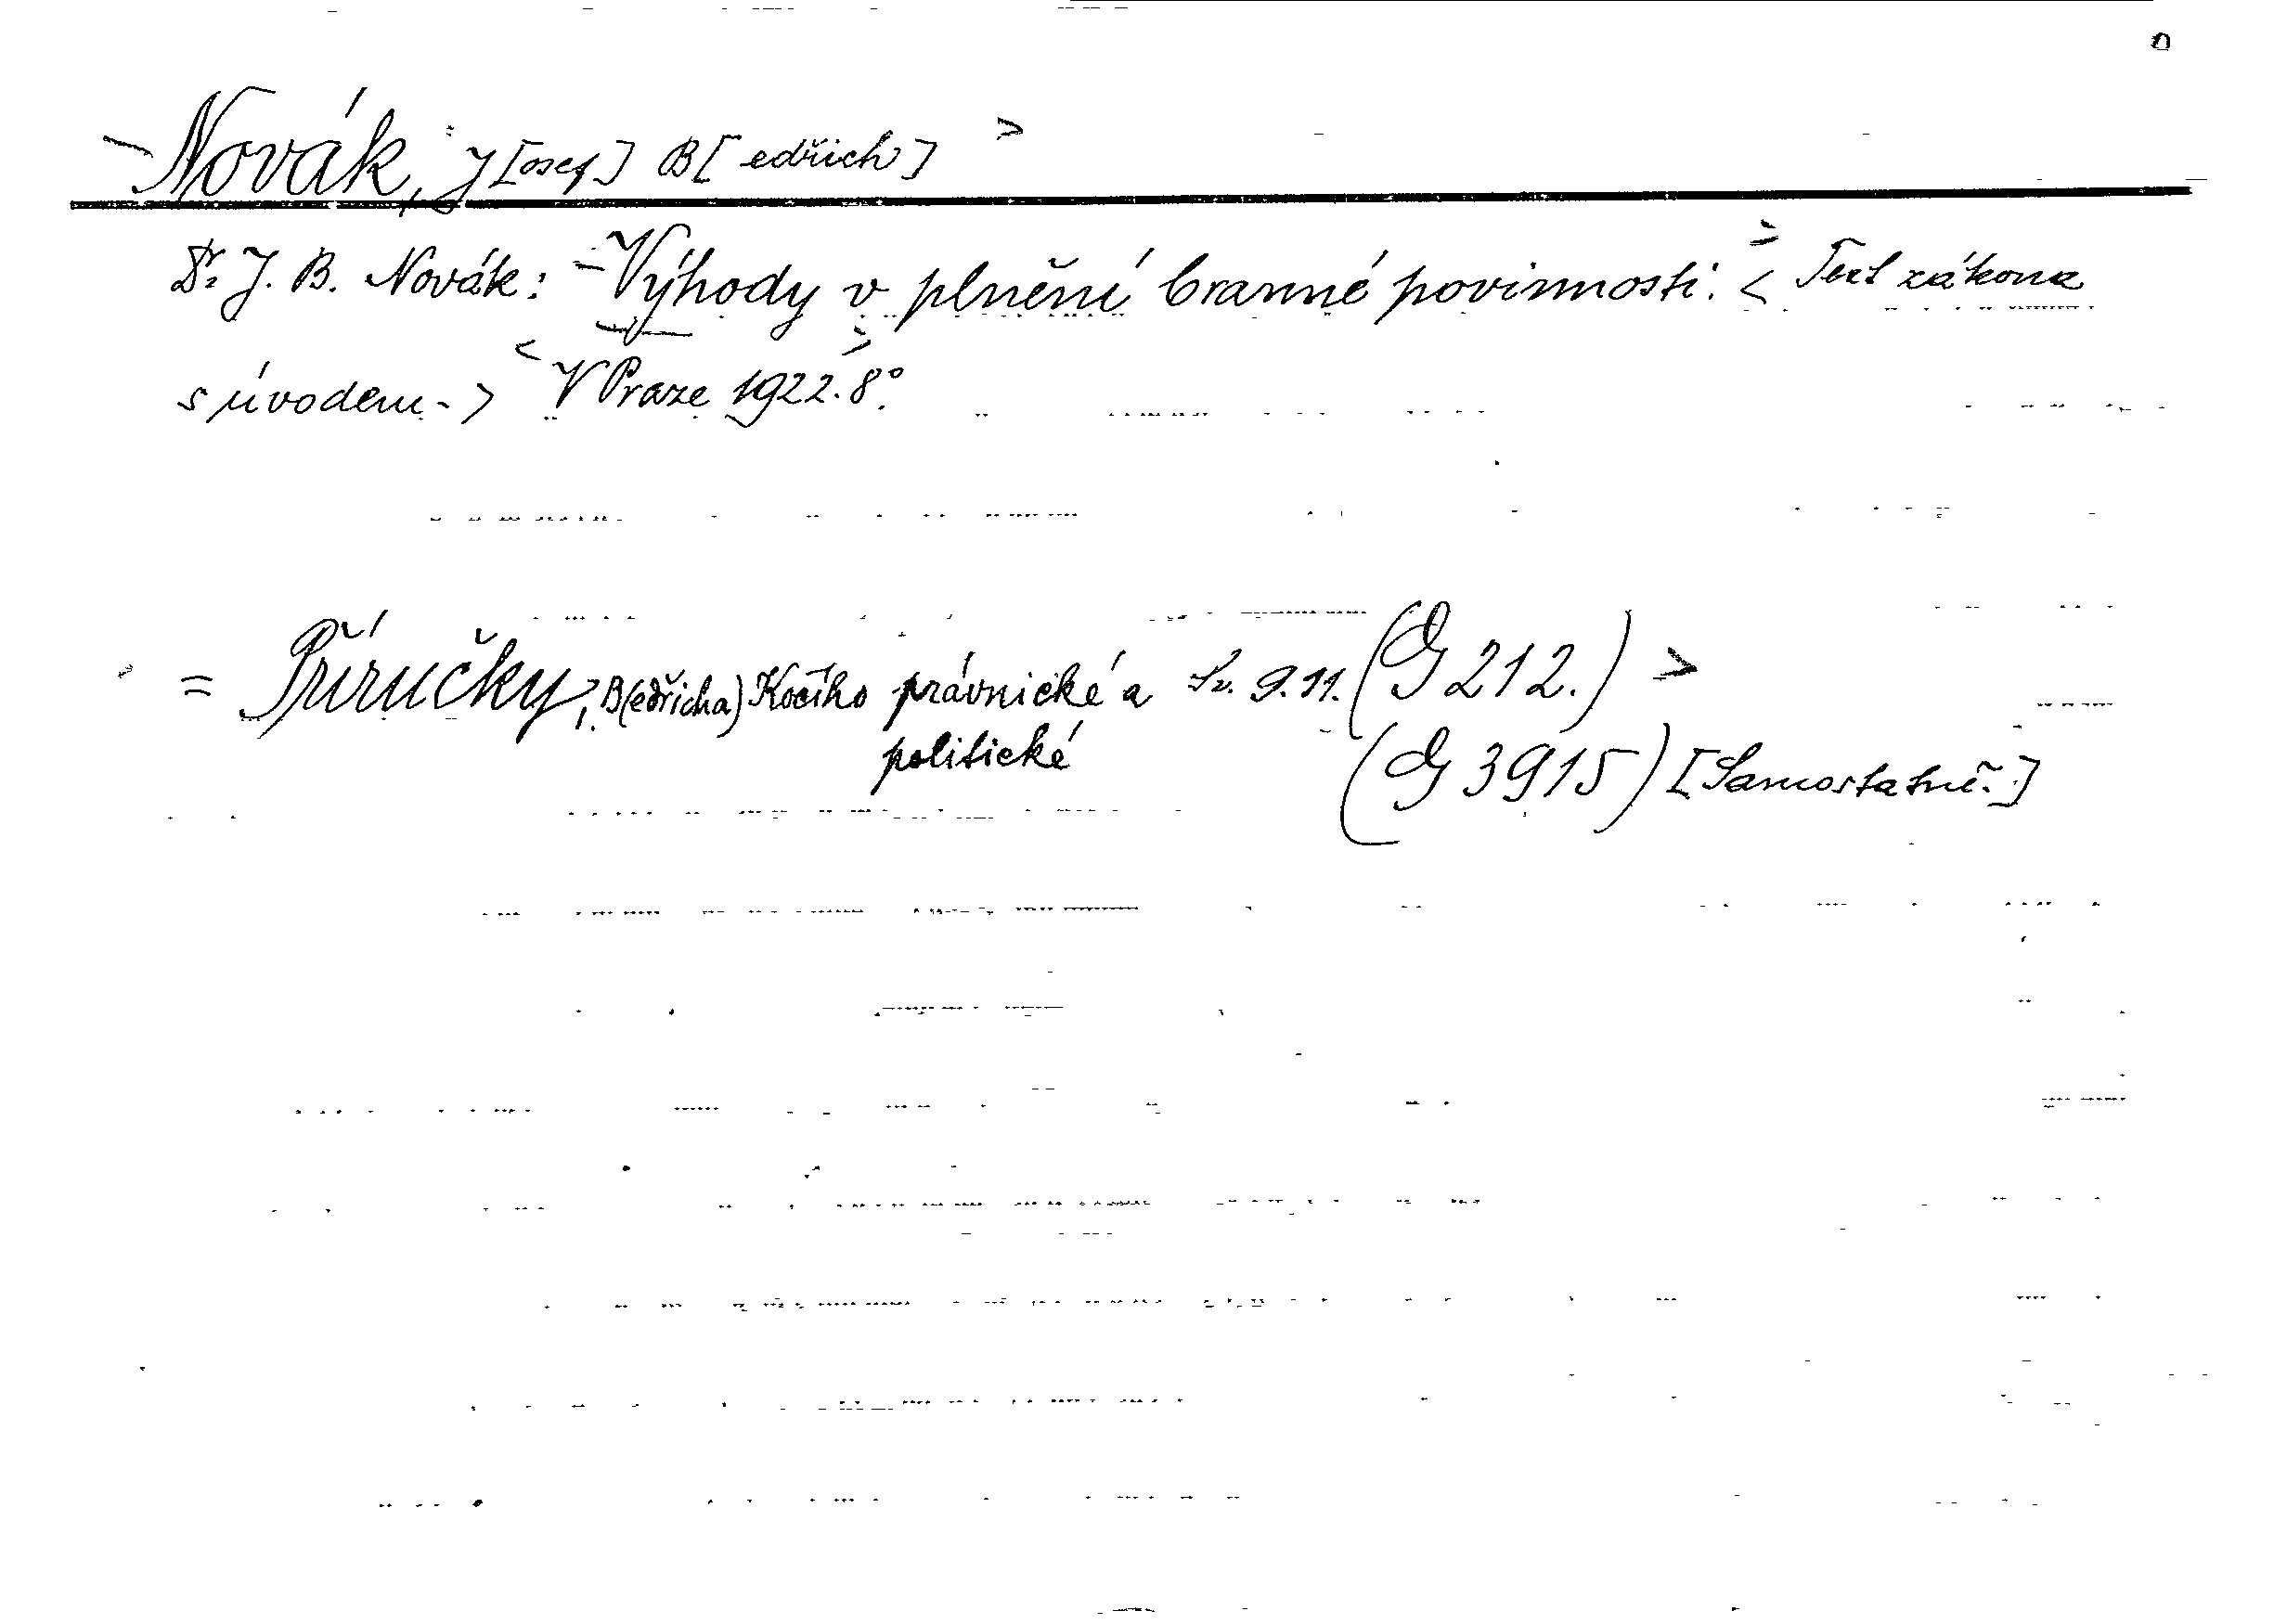 Novák, J[osef] B[edřich] >
Dr. J. B. Novák: Výhody v plnění branné povinnosti. < Text zákona
s úvodem. > < V Praze 1922. 8°. >
= Příručky, B(edřicha) Kočího právnické a Sv. 9.11. (G 212.) >
politické (G 3915) [Samostatně.]